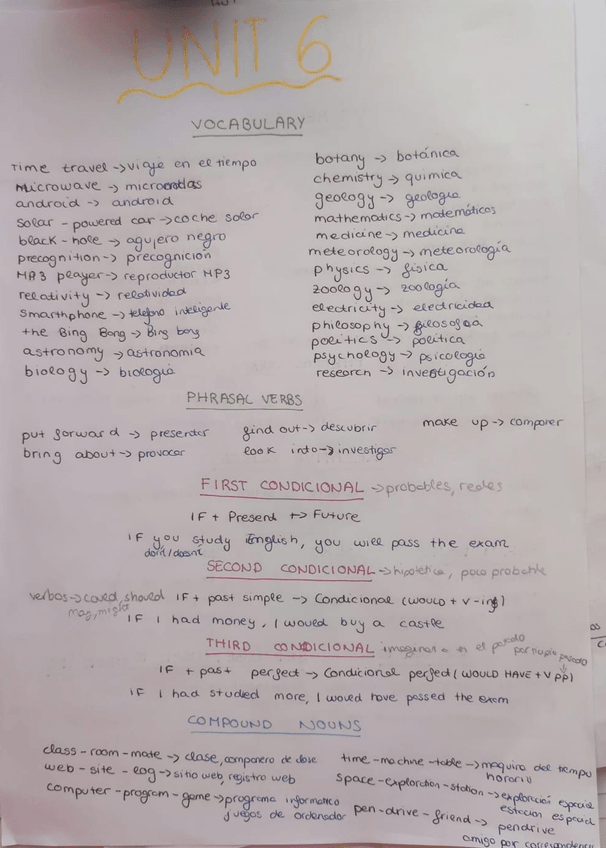 UNIT 6
VOCABULARY
Time travel → viaje en el tiempo
Microwave → microondas
android → android
solar-powered car → coche solar
black-hole → agujero negro
precognition → precognición
MP3 player → reproductor MP3
relativity → relatividad
smarthphone → telefono inteligente
the Bing Bong → Bing bong
astronomy → astronomia
biology → biologia
botany → botánica
chemistry → quimica
geology → geologia
mathematics → matemáticas
medicine → medicina
meteorology → meteorología
physics → física
zoology → zoología
electricity → electricidad
philosophy → filosofia
politics → política
psychology → psicologia
research → investigación
PHRASAL VERBS
put forward → presentar
bring about → provocar
find out → descubrir
look into → investigar
make up → componer
FIRST CONDICIONAL → probables, reales
IF + Present → Future
IF you study English, you will pass the exam
don't/doesn't
SECOND CONDICIONAL → hipotética, poco probable
verbos → could, should
may, might
IF + past simple → Condicional (WOULD + V-inf)
IF I had money, I would buy a castle
THIRD CONDICIONAL imaginaria en el pasado
participio pasado
IF + past perfect → Condicional perfect (WOULD HAVE + V PP)
IF I had studied more, I would have passed the exam
COMPOUND NOUNS
class-room-mate → clase, compañero de clase
web-site-log → sitio web, registro web
computer-program-game → programa informatico
juegos de ordenador
time-machine-table → maquina del tiempo
horario
space-exploration-station → exploración espacial
estacion espacial
pen-drive-friend → pendrive
amigo por correspondencia